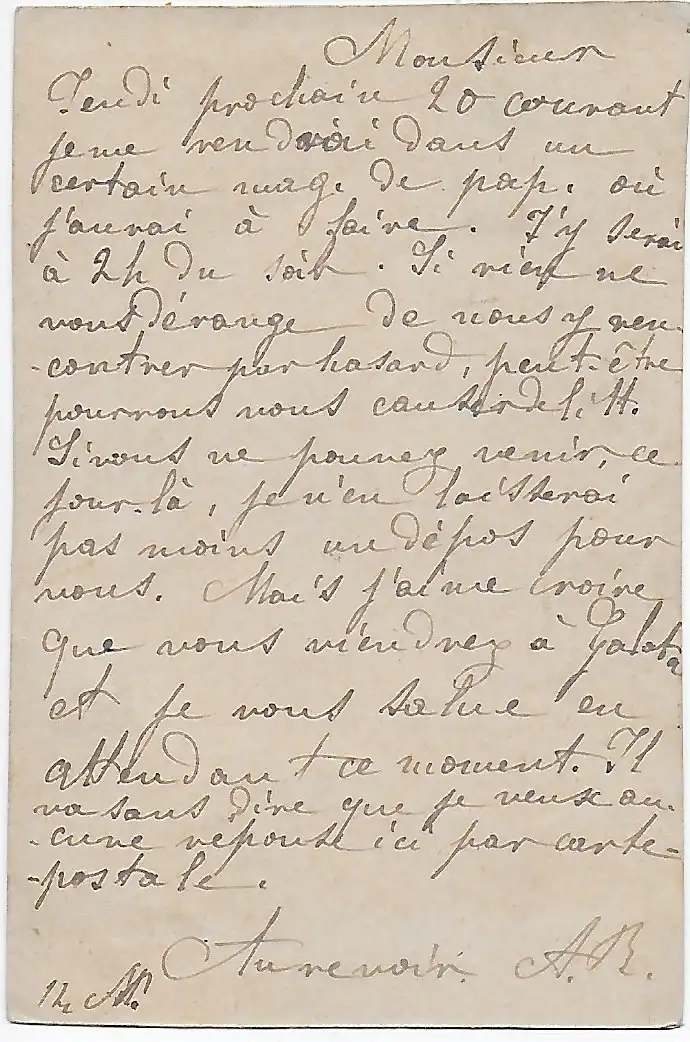 Monsieur
Jeudi prochain 20 courant
je me rendrai dans un
certain mag. de pap. où
j'aurai à faire. J'y serai
à 2h du soir. Si rien ne
vous dérange de nous y ren-
-contrer par hasard, peut-être
pourrons nous causer de l. H.
Si vous ne pouvez venir, ce
jour-là, je n'en laisserai
pas moins un dépos pour
vous. Mais j'aime croire
que vous viendrez à Galata
et je vous salue en
attendant ce moment. Il
va sans dire que je veux au-
-cune reponse ici par carte-
-postale.
Au revoir. A.R.
12